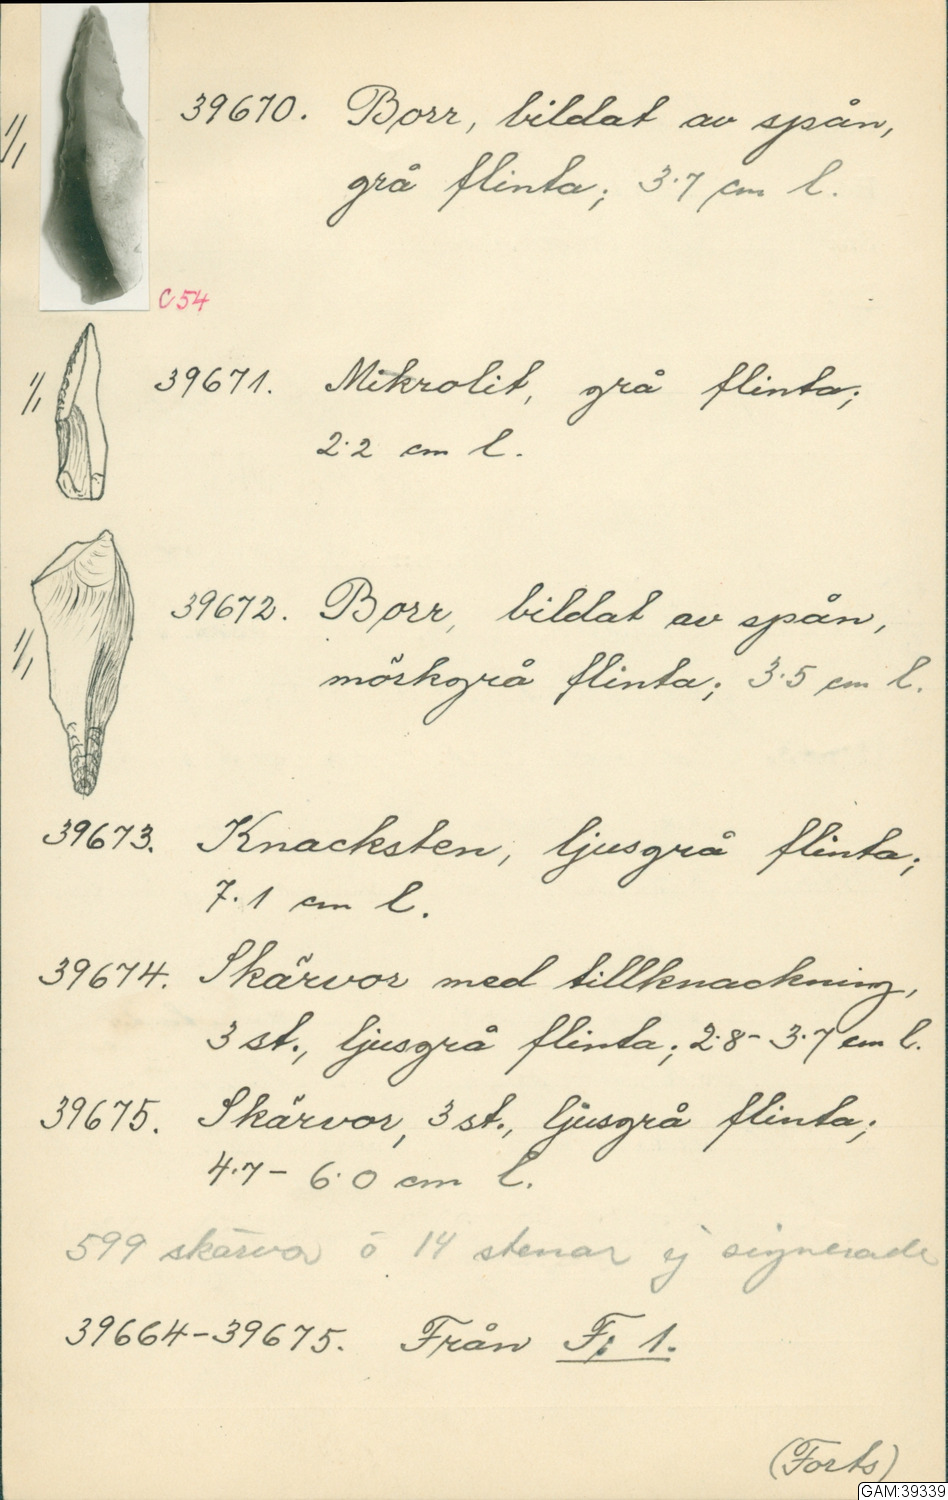 1/1
39670. Borr, bildat av spån,
grå flinta; 3.7 cm l.
C 54
1/1
39671. Mikrolit, grå flinta;
2.2 cm l.
1/1
39672. Borr, bildat av spån,
mörkgrå flinta; 3.5 cm l.
39673. Knacksten, ljusgrå flinta;
7.1 cm l.
39674. Skärvor med tillknackning,
3 st., ljusgrå flinta; 2.8 - 3.7 cm l.
39675. Skärvor, 3 st., ljusgrå flinta;
4.7 - 6.0 cm l.
599 skärvor o 14 stenar ej signerade
39664-39675. Från F; 1.
(Forts)
GAM:39339